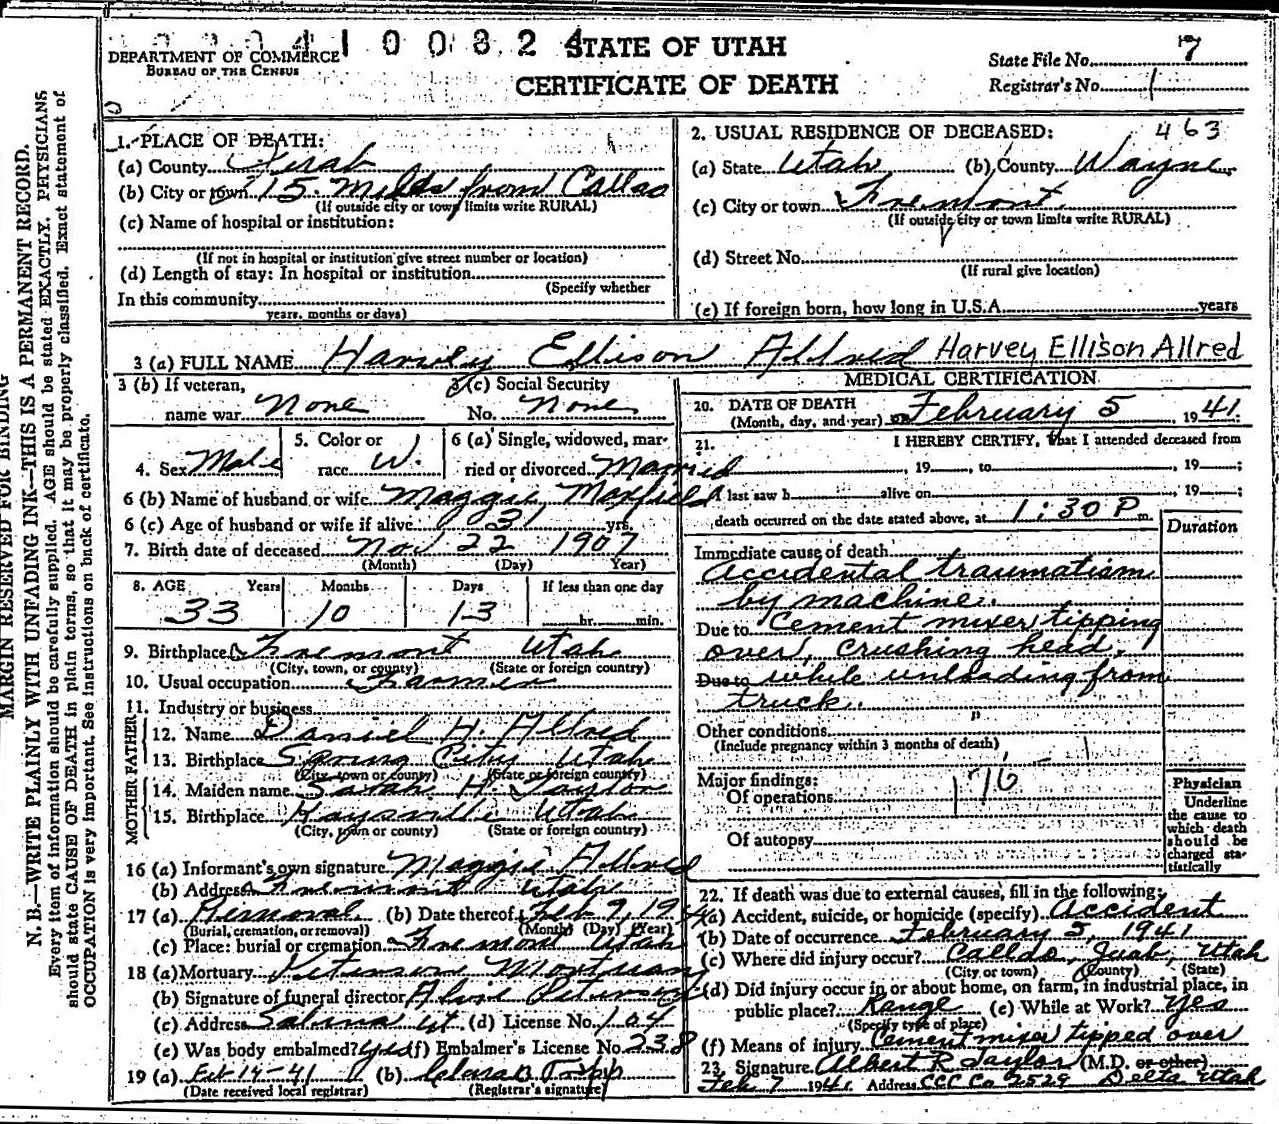 100824 STATE OF UTAH
DEPARTMENT OF COMMERCE
BUREAU OF THE CENSUS
CERTIFICATE OF DEATH
State File No. 7
Registrar's No. 1
MARGIN RESERVED FOR BINDING
N. B.—WRITE PLAINLY WITH UNFADING INK—THIS IS A PERMANENT RECORD.
Every item of information should be carefully supplied. AGE should be stated EXACTLY. PHYSICIANS
should state CAUSE OF DEATH in plain terms, so that it may be properly classified. Exact statement of
OCCUPATION is very important. See instructions on back of certificate.
1. PLACE OF DEATH:
(a) County Juab
(b) City or town 15 Miles from Callao
(If outside city or town limits write RURAL)
(c) Name of hospital or institution:
(If not in hospital or institution give street number or location)
(d) Length of stay: In hospital or institution
(Specify whether
In this community
years, months or days)
2. USUAL RESIDENCE OF DECEASED: 463
(a) State Utah (b) County Wayne
(c) City or town Fremont
(If outside city or town limits write RURAL)
(d) Street No.
(If rural give location)
(e) If foreign born, how long in U.S.A. years
3 (a) FULL NAME Harvey Ellison Allred Harvey Ellison Allred
3 (b) If veteran,
name war None
3 (c) Social Security
No. None
4. Sex Male
5. Color or
race W.
6 (a) Single, widowed, mar-
ried or divorced Married
6 (b) Name of husband or wife Maggie Maxfield
6 (c) Age of husband or wife if alive 31 yrs.
7. Birth date of deceased Nov 22 1907
(Month) (Day) Year)
8. AGE Years Months Days If less than one day
33 10 13 hr. min.
9. Birthplace Fremont Utah
(City, town, or county) (State or foreign country)
10. Usual occupation Farmer
11. Industry or business
FATHER
12. Name Daniel H. Allred
13. Birthplace Spring City Utah
(City, town or county) (State or foreign country)
MOTHER
14. Maiden name Sarah H. Taylor
15. Birthplace Kaysville Utah
(City, town or county) (State or foreign country)
16 (a) Informant's own signature Maggie Allred
(b) Address Fremont Utah
17 (a) Removal (b) Date thereof Feb 9, 194
(Burial, cremation, or removal) (Month) (Day) (Year)
(c) Place: burial or cremation Fremont Utah
18 (a) Mortuary Peterson Mortuary
(b) Signature of funeral director Alvie Peterson
(c) Address Salina Ut. (d) License No. 104
(e) Was body embalmed? Yes (f) Embalmer's License No. 238
19 (a) Feb 14-41 (b) Clara B
(Date received local registrar) (Registrar's signature)
MEDICAL CERTIFICATION
20. DATE OF DEATH
(Month, day, and year) February 5 1941
21. I HEREBY CERTIFY, that I attended deceased from
, 19 , to , 19 ;
I last saw h alive on , 19 ;
death occurred on the date stated above, at 1:30 P m.
Duration
Immediate cause of death
Accidental traumatism
by machine.
Due to Cement mixer tipping
over, crushing head,
Due to while unloading from
truck.
Other conditions
(Include pregnancy within 3 months of death)
Major findings:
Of operations 176
Of autopsy
Physician
Underline
the cause to
which death
should be
charged sta-
tistically
22. If death was due to external causes, fill in the following:
(a) Accident, suicide, or homicide (specify) Accident
(b) Date of occurrence February 5, 1941
(c) Where did injury occur? Calldo, Juab, Utah
(City or town) (County) (State)
(d) Did injury occur in or about home, on farm, in industrial place, in
public place? Range (e) While at Work? Yes
(Specify type of place)
(f) Means of injury Cement mixer tipped over
23. Signature Albert R Taylor (M.D. or other)
Feb 7 1941 Address CCC Co 2529 Delta Utah